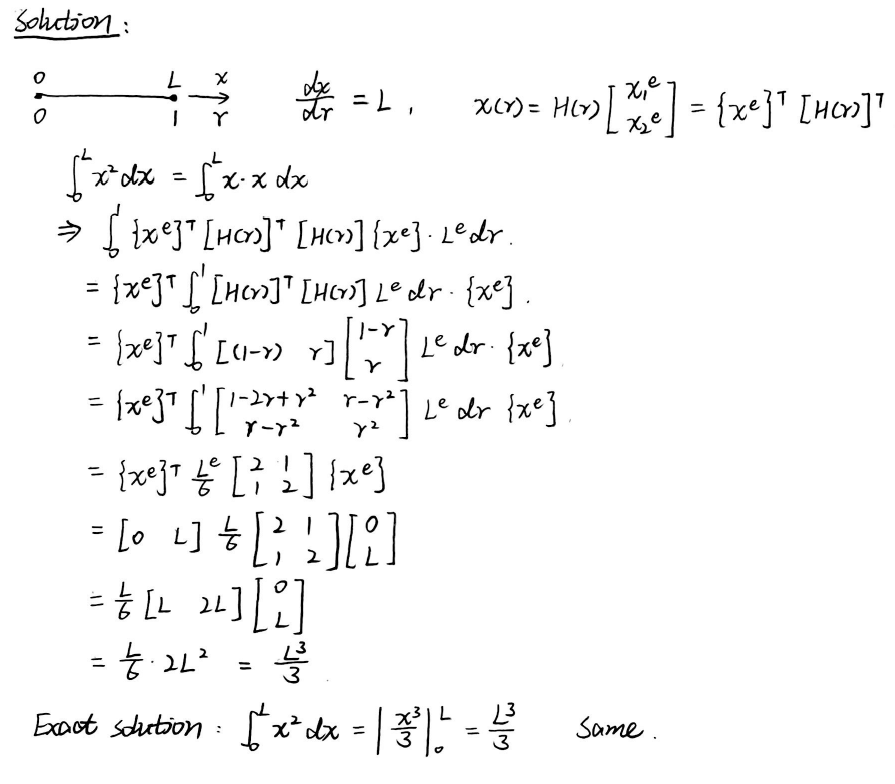 Solution:
0 L x
0 1 r
dx/dr = L , x(r) = H(r) [x₁ᵉ x₂ᵉ] = {xᵉ}ᵀ [H(r)]ᵀ
∫₀ᴸ x² dx = ∫₀ᴸ x · x dx
⇒ ∫₀¹ {xᵉ}ᵀ [H(r)]ᵀ [H(r)] {xᵉ} · Lᵉ dr .
= {xᵉ}ᵀ ∫₀¹ [H(r)]ᵀ [H(r)] Lᵉ dr · {xᵉ} .
= {xᵉ}ᵀ ∫₀¹ [(1-r) r] [1-r ; r] Lᵉ dr · {xᵉ}
= {xᵉ}ᵀ ∫₀¹ [1-2r+r² r-r² ; r-r² r²] Lᵉ dr {xᵉ} .
= {xᵉ}ᵀ Lᵉ/6 [2 1 ; 1 2] {xᵉ}
= [0 L] L/6 [2 1 ; 1 2] [0 ; L]
= L/6 [L 2L] [0 ; L]
= L/6 · 2L² = L³/3 .
Exact solution : ∫₀ᴸ x² dx = | x³/3 |₀ᴸ = L³/3 Same .